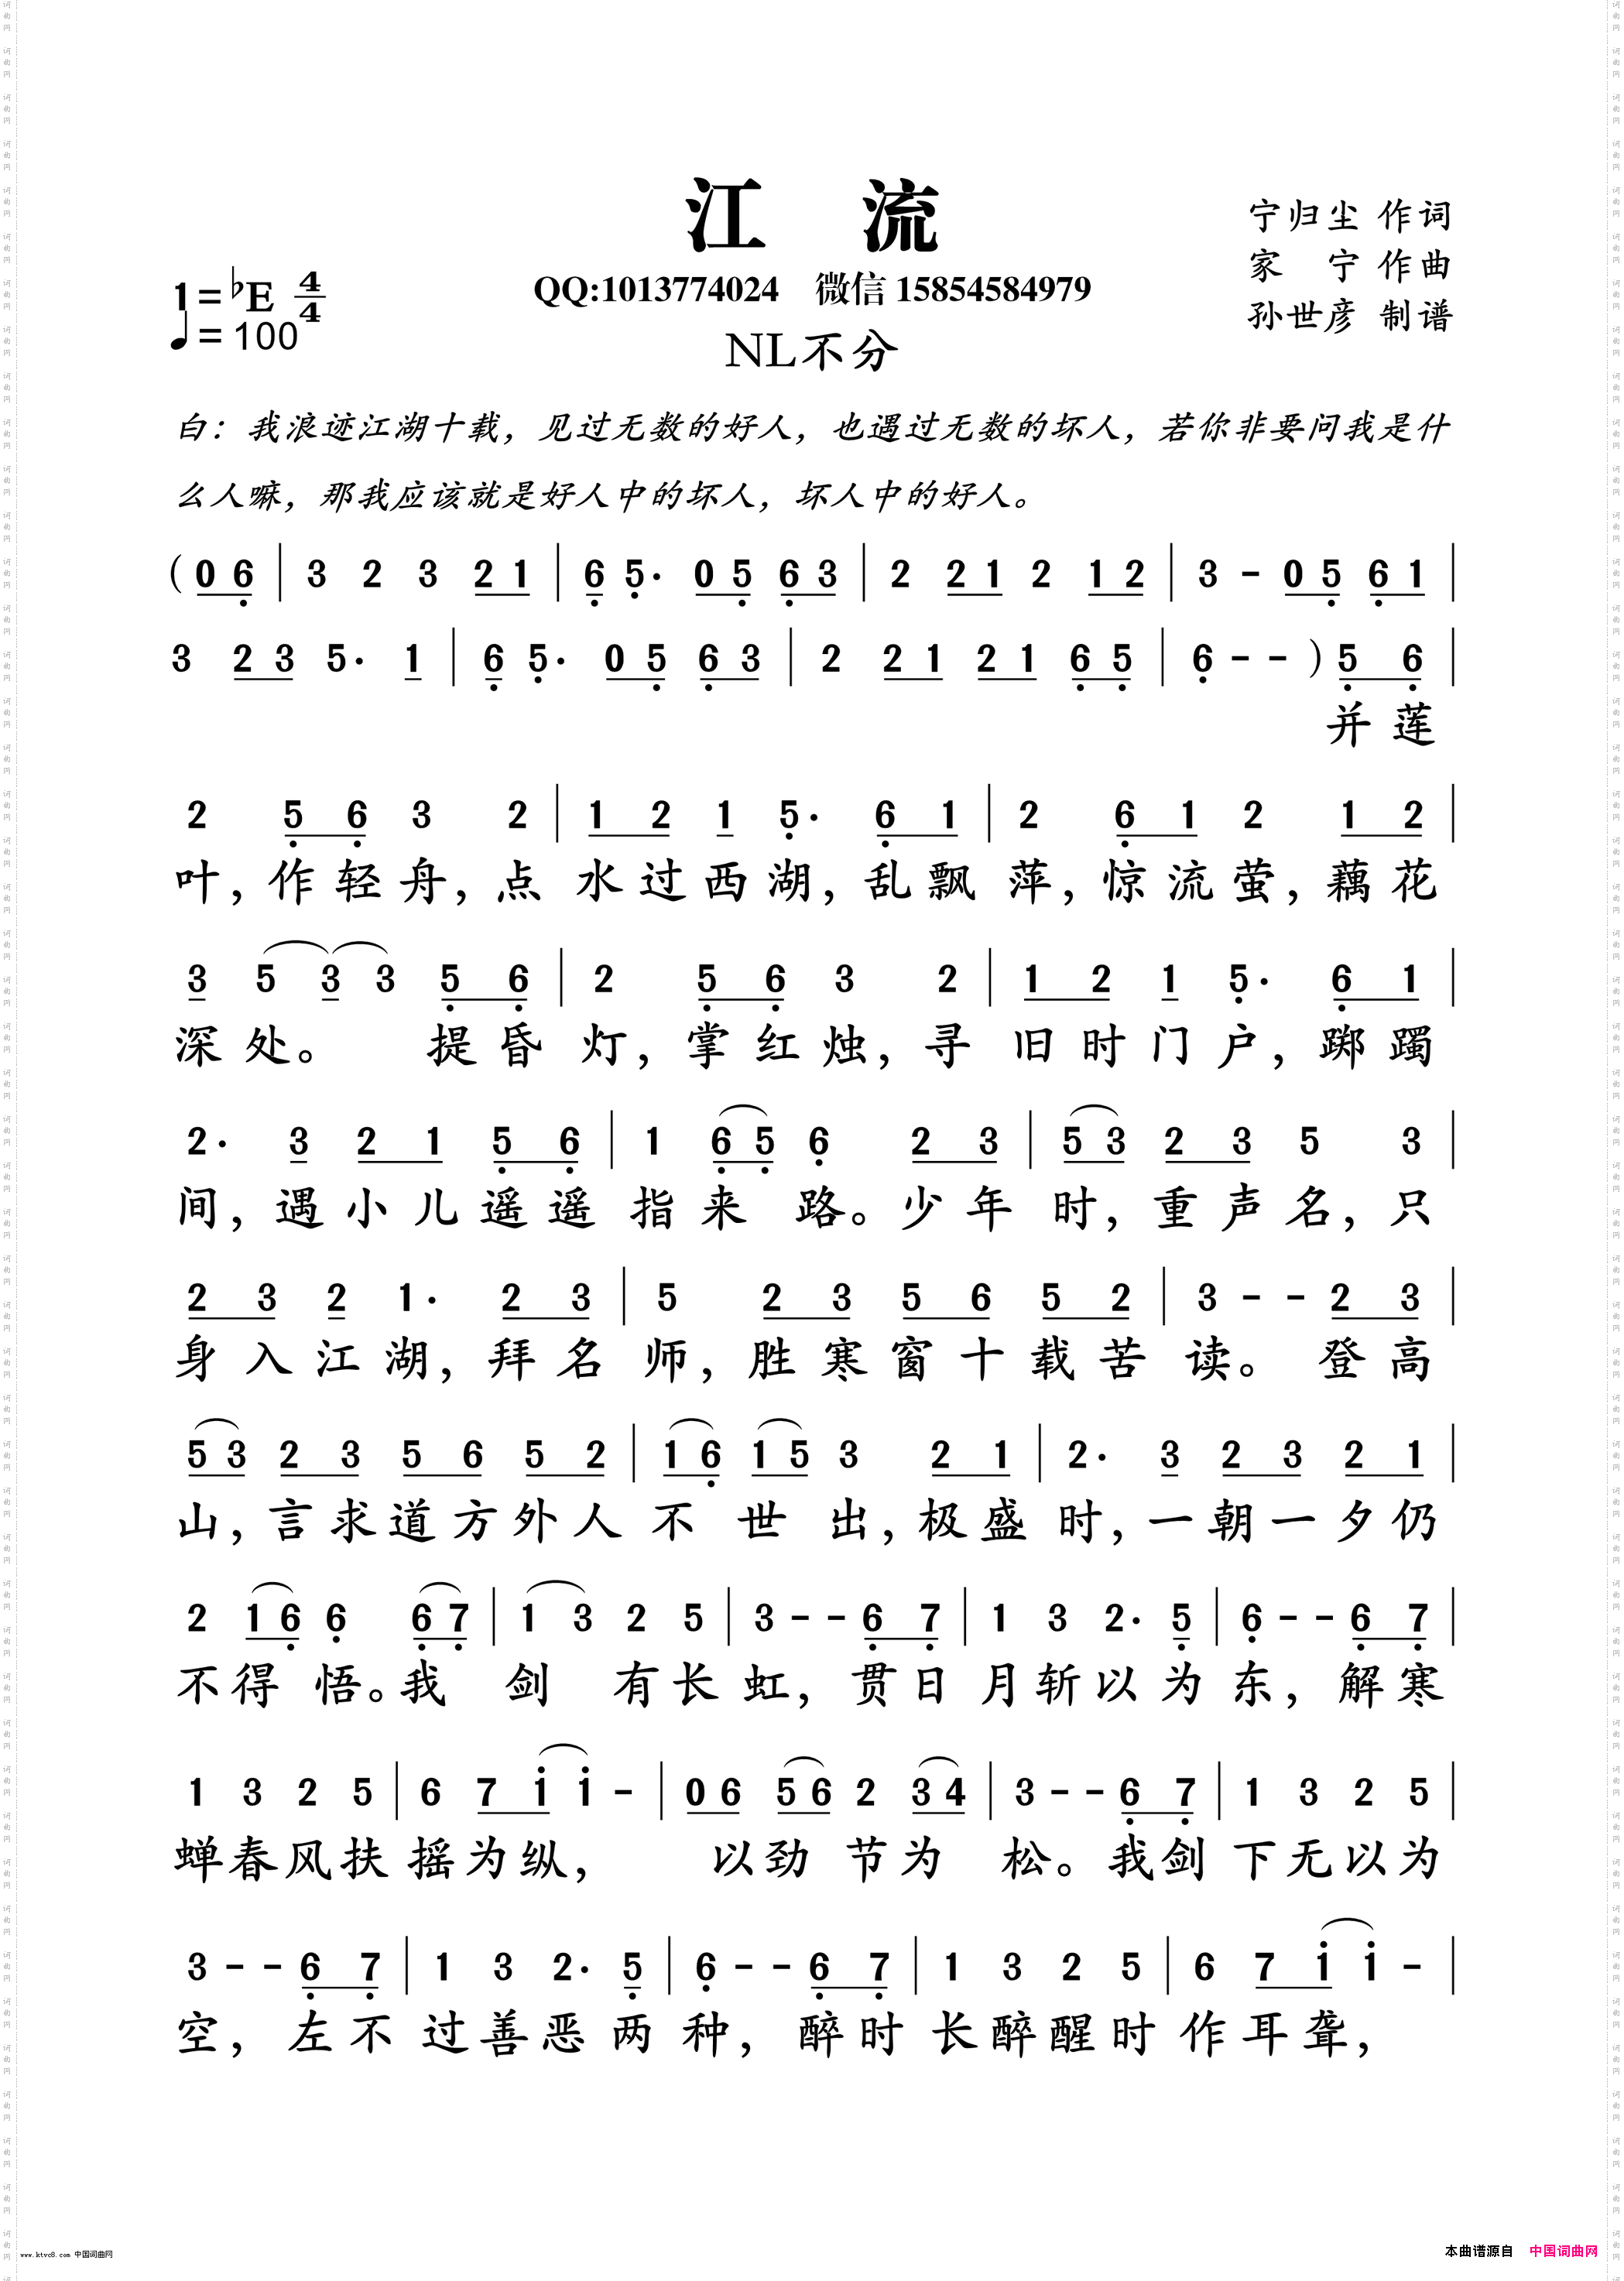 江 流
宁归尘 作词
家 宁 作曲
孙世彦 制谱
1=♭E 4/4
♩=100
QQ:1013774024 微信 15854584979
NL不分
白：我浪迹江湖十载，见过无数的好人，也遇过无数的坏人，若你非要问我是什
么人嘛，那我应该就是好人中的坏人，坏人中的好人。
(0 6̣ | 3 2 3 2 1 | 6̣ 5̣· 0 5̣ 6̣ 3 | 2 2 1 2 1 2 | 3 - 0 5̣ 6̣ 1 |
3 2 3 5· 1 | 6̣ 5̣· 0 5̣ 6̣ 3 | 2 2 1 2 1 6̣ 5̣ | 6̣ - - ) 5̣ 6̣ |
并莲
2 5̣ 6̣ 3 2 | 1 2 1 5̣· 6̣ 1 | 2 6̣ 1 2 1 2 |
叶，作轻舟，点水过西湖，乱飘萍，惊流萤，藕花
3 5 3 3 5̣ 6̣ | 2 5̣ 6̣ 3 2 | 1 2 1 5̣· 6̣ 1 |
深处。 提昏灯，掌红烛，寻旧时门户，踯躅
2· 3 2 1 5̣ 6̣ | 1 6̣ 5̣ 6̣ 2 3 | 5 3 2 3 5 3 |
间，遇小儿遥遥指来路。少年时，重声名，只
2 3 2 1· 2 3 | 5 2 3 5 6 5 2 | 3 - - 2 3 |
身入江湖，拜名师，胜寒窗十载苦读。登高
5 3 2 3 5 6 5 2 | 1 6̣ 1 5 3 2 1 | 2· 3 2 3 2 1 |
山，言求道方外人不世出，极盛时，一朝一夕仍
2 1 6̣ 6̣ 6̣ 7̣ | 1 3 2 5 | 3 - - 6̣ 7̣ | 1 3 2· 5̣ | 6̣ - - 6̣ 7̣ |
不得悟。我剑有长虹，贯日月斩以为东，解寒
1 3 2 5 | 6 7 1̇ 1̇ - | 0 6 5 6 2 3 4 | 3 - - 6̣ 7̣ | 1 3 2 5 |
蝉春风扶摇为纵， 以劲节为松。我剑下无以为
3 - - 6̣ 7̣ | 1 3 2· 5̣ | 6̣ - - 6̣ 7̣ | 1 3 2 5 | 6 7 1̇ 1̇ - |
空，左不过善恶两种，醉时长醉醒时作耳聋，
www.ktvc8.com 中国词曲网
本曲谱源自 中国词曲网